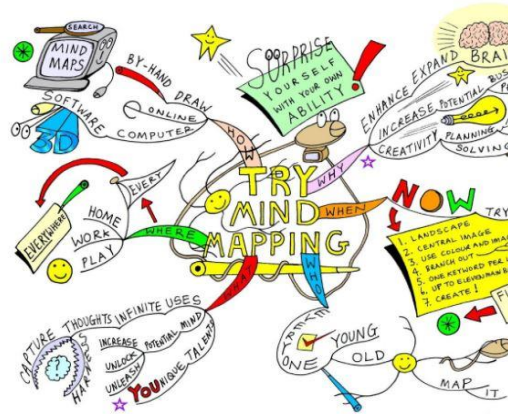 SEARCH
MIND
MAPS
BY-HAND DRAW
SOFTWARE
3D
ONLINE
COMPUTER
HOW
SURPRISE
YOURSELF
WITH YOUR OWN
ABILITY!
ENHANCE EXPAND BRAI
INCREASE POTENTIAL BUS
CREATIVITY PLANNING
SOLVING
WHY
TRY
MIND
MAPPING
WHEN
NOW
TRY
1. LANDSCAPE
2. CENTRAL IMAGE
3. USE COLOUR AND IMA
4. BRANCH OUT
5. ONE KEYWORD PER L
6. UP TO ELEVEN MAIN
7. CREATE!
FI
WHERE
EVERY
EVERYWHERE
HOME
WORK
PLAY
WHAT
CAPTURE THOUGHTS INFINITE USES
HARN
INCREASE POTENTIAL MIND
UNLOCK
UNLEASH YOUNIQUE TALENT
WHO
EVERY
ONE
YOUNG
OLD
MAP IT